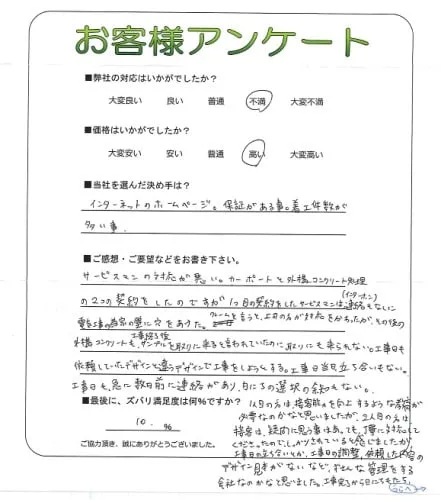 お客様アンケート
■弊社の対応はいかがでしたか？
大変良い 良い 普通 不満 大変不満
■価格はいかがでしたか？
大変安い 安い 普通 高い 大変高い
■当社を選んだ決め手は？
インターネットのホームページ。保証がある事。着工件数が
多い事。
■ご感想・ご要望などをお書き下さい。
サービスマンの対応が悪い。カーポートと外構コンクリート処理
の2つの契約をしたのですが1つ目の契約をしたサービスマンは連絡もなしに
(インターホン)
電気工事の為家の壁に穴をあけた。クレームを言うと、上司の方が対応をかったが、その後の
工事終了後
外構コンクリートも、サンプルを取りに来ると言われていたのに、取りにも来られない。工事日も
依頼していたデザインと違うデザインで工事をしようとする。工事日当日立ち合いもない。
工事日も、急に数日前に連絡があり、日にちの選択の余地もない。
■最後に、ズバリ満足度は何％ですか？
10. %
ご協力頂き、誠にありがとうございました。
1人目の方は、接客能力を向上するような
必要なのかなと思いましたが、2人目の方は
接客は、疑問に思う事はあっても、丁寧に対応して
くださったので、しっかりされていると感じましたが
工事日の立ち合いとか、工事日の調整、依頼した内容の
デザイン見本がないなど、ずさんな管理をする
会社なのかなと思いました。工事終了から日にちもたち、
うらへ